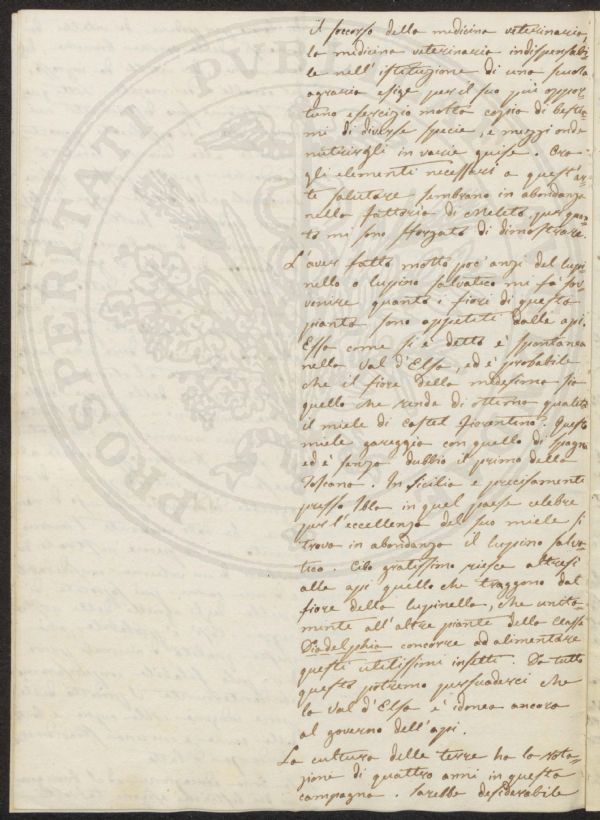 il soccorso della medicina veterinaria,
la medicina veterinaria indispensabi-
le nell'istituzione di una scuola
agraria esige per il suo più oppor-
tuno esercizio molta copia di bestia-
mi di diverse specie, e mezzi onde
nutrirgli in varie guise. Ora
gli elementi necessarj a quest'ar-
te salutare sembrano in abondanza
nella fattoria di Meleto per quan-
to mi sono sforzato di dimostrare.
L'aver fatto motto poc'anzi del lupi-
nello o lupino salvatico mi fa sov-
venire quanto i fiori di questa
pianta sono appetiti dalle api.
Essa come si è detto è spontanea
nella Val d'Elsa, ed è probabile
che il fiore della medesima sia
quello che rende di ottima qualità
il miele di Castel Fiorentino. Questo
miele gareggia con quello di Spagna
ed è senza dubbio il primo della
Toscana. In Sicilia e precisamente
presso Ibla in quel paese celebre
per l'eccellenza del suo miele si
trova in abondanza il lupino salva-
tico. Cibo gratissimo riesce altresì
alle api quello che traggono dal
fiore della lupinella, che unita-
mente all'altre piante della classe
Diadelphia concorre ad alimentare
questi utilissimi insetti. Da tutto
questo potremo persuaderci che
la Val d'Elsa è idonea ancora
al governo dell'api.
La cultura delle terre ha la rota-
zione di quattro anni in questa
campagna. Sarebbe desiderabile
PROSPERITATI PVBLI